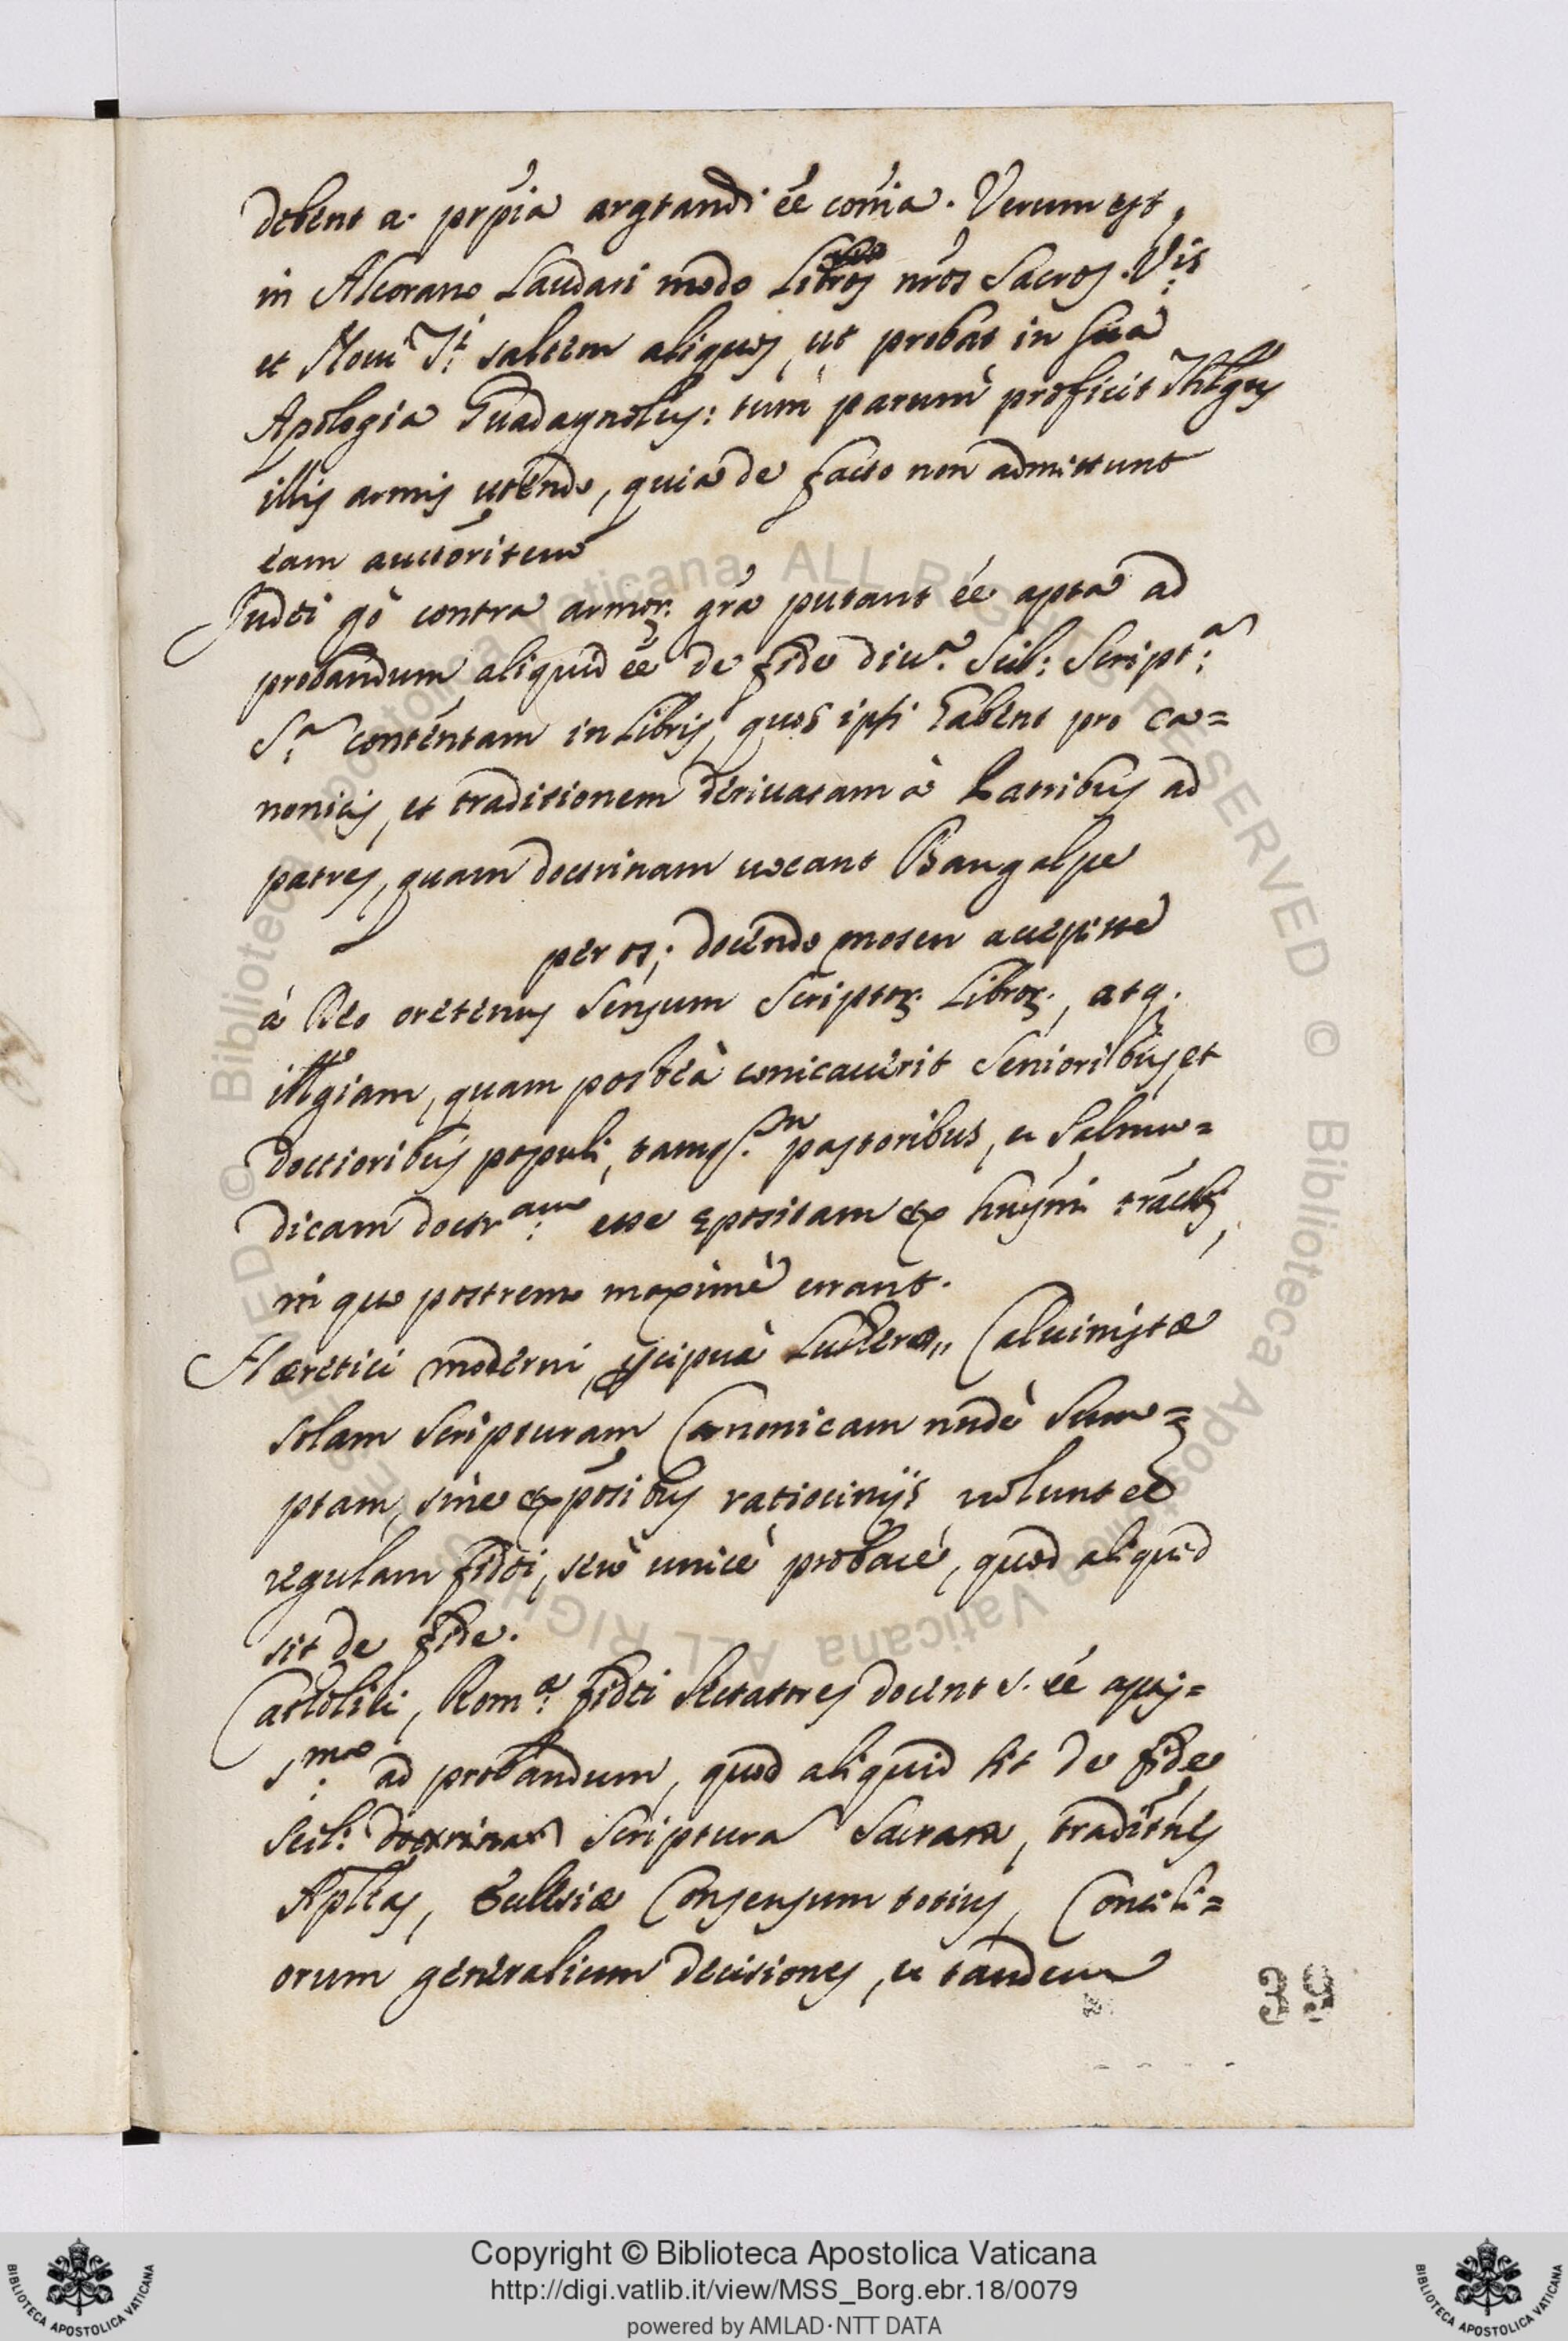 debent a. prpīa argtandi ēē cōnia. Verum est,
in Alcorano Laudari modo Libros nr̄os Sacros. V:is
et Noui T:i saltem aliquos, ut probat in sua
Apologia Guadagnolus: tum parum proficit Thlgus
illis armis utendo, quia de facto non admittunt
eam auctōritem
Judei gò contra armor. grā putant éé apta ad
probandum aliquid éé de fide diu:a Scil: Script:a
S:a contentam in Libris, quos ipsi habent pro ca=
nonicis, et traditionem deriuatam à Patribus ad
patres, quam doctrinam uocant
per os; docendo mosen accepisse
à Deo oretenus sensum Scriptor. Libror., atq.
illgiam, quam posteà cōnicauerit Senioribus, et
doctioribus populi, tamq. pastoribus, et Salmu=
dicam doctr:am esse expositam ex huiusm̄i trāctibus,
in quo postremo maximè errant.
Hæretici moderni, præcipuè Luther Caluinistæ
solam Scripturam Canonicam nudè sum=
ptam, sine expōsibus ratiocinijs uolunt éé
regulam fidei, seù unicè probare, quod aliquid
sit de fide.
Catholici, Rom:æ fidei Sectatores docent S. éé aptis=
s:ma ad probandum, quod aliquid sit de fide,
Scil: Scriptura Sacram, traditn̄es
Aplicas, Ecclesiæ Consensum totius, Concili=
orum generalium decisiones, et tandem
39
© Biblioteca Apostolica Vaticana ALL RIGHTS RESERVED © Biblioteca Apostolica Vaticana ALL RIGHTS RESERVED
Copyright © Biblioteca Apostolica Vaticana
http://digi.vatlib.it/view/MSS_Borg.ebr.18/0079
powered by AMLAD·NTT DATA
BIBLIOTECA APOSTOLICA VATICANA
BIBLIOTECA APOSTOLICA VATICANA